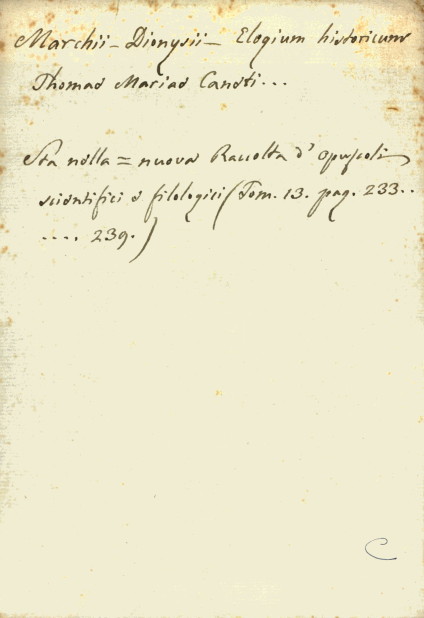 Marchii - Dionysii - Elogium historicum
Thomae Mariae Caneti...
Sta nella = nuova Raccolta d' opuscoli
scientifici e filologici (Tom. 13. pag. 233..
.... 239.)
C